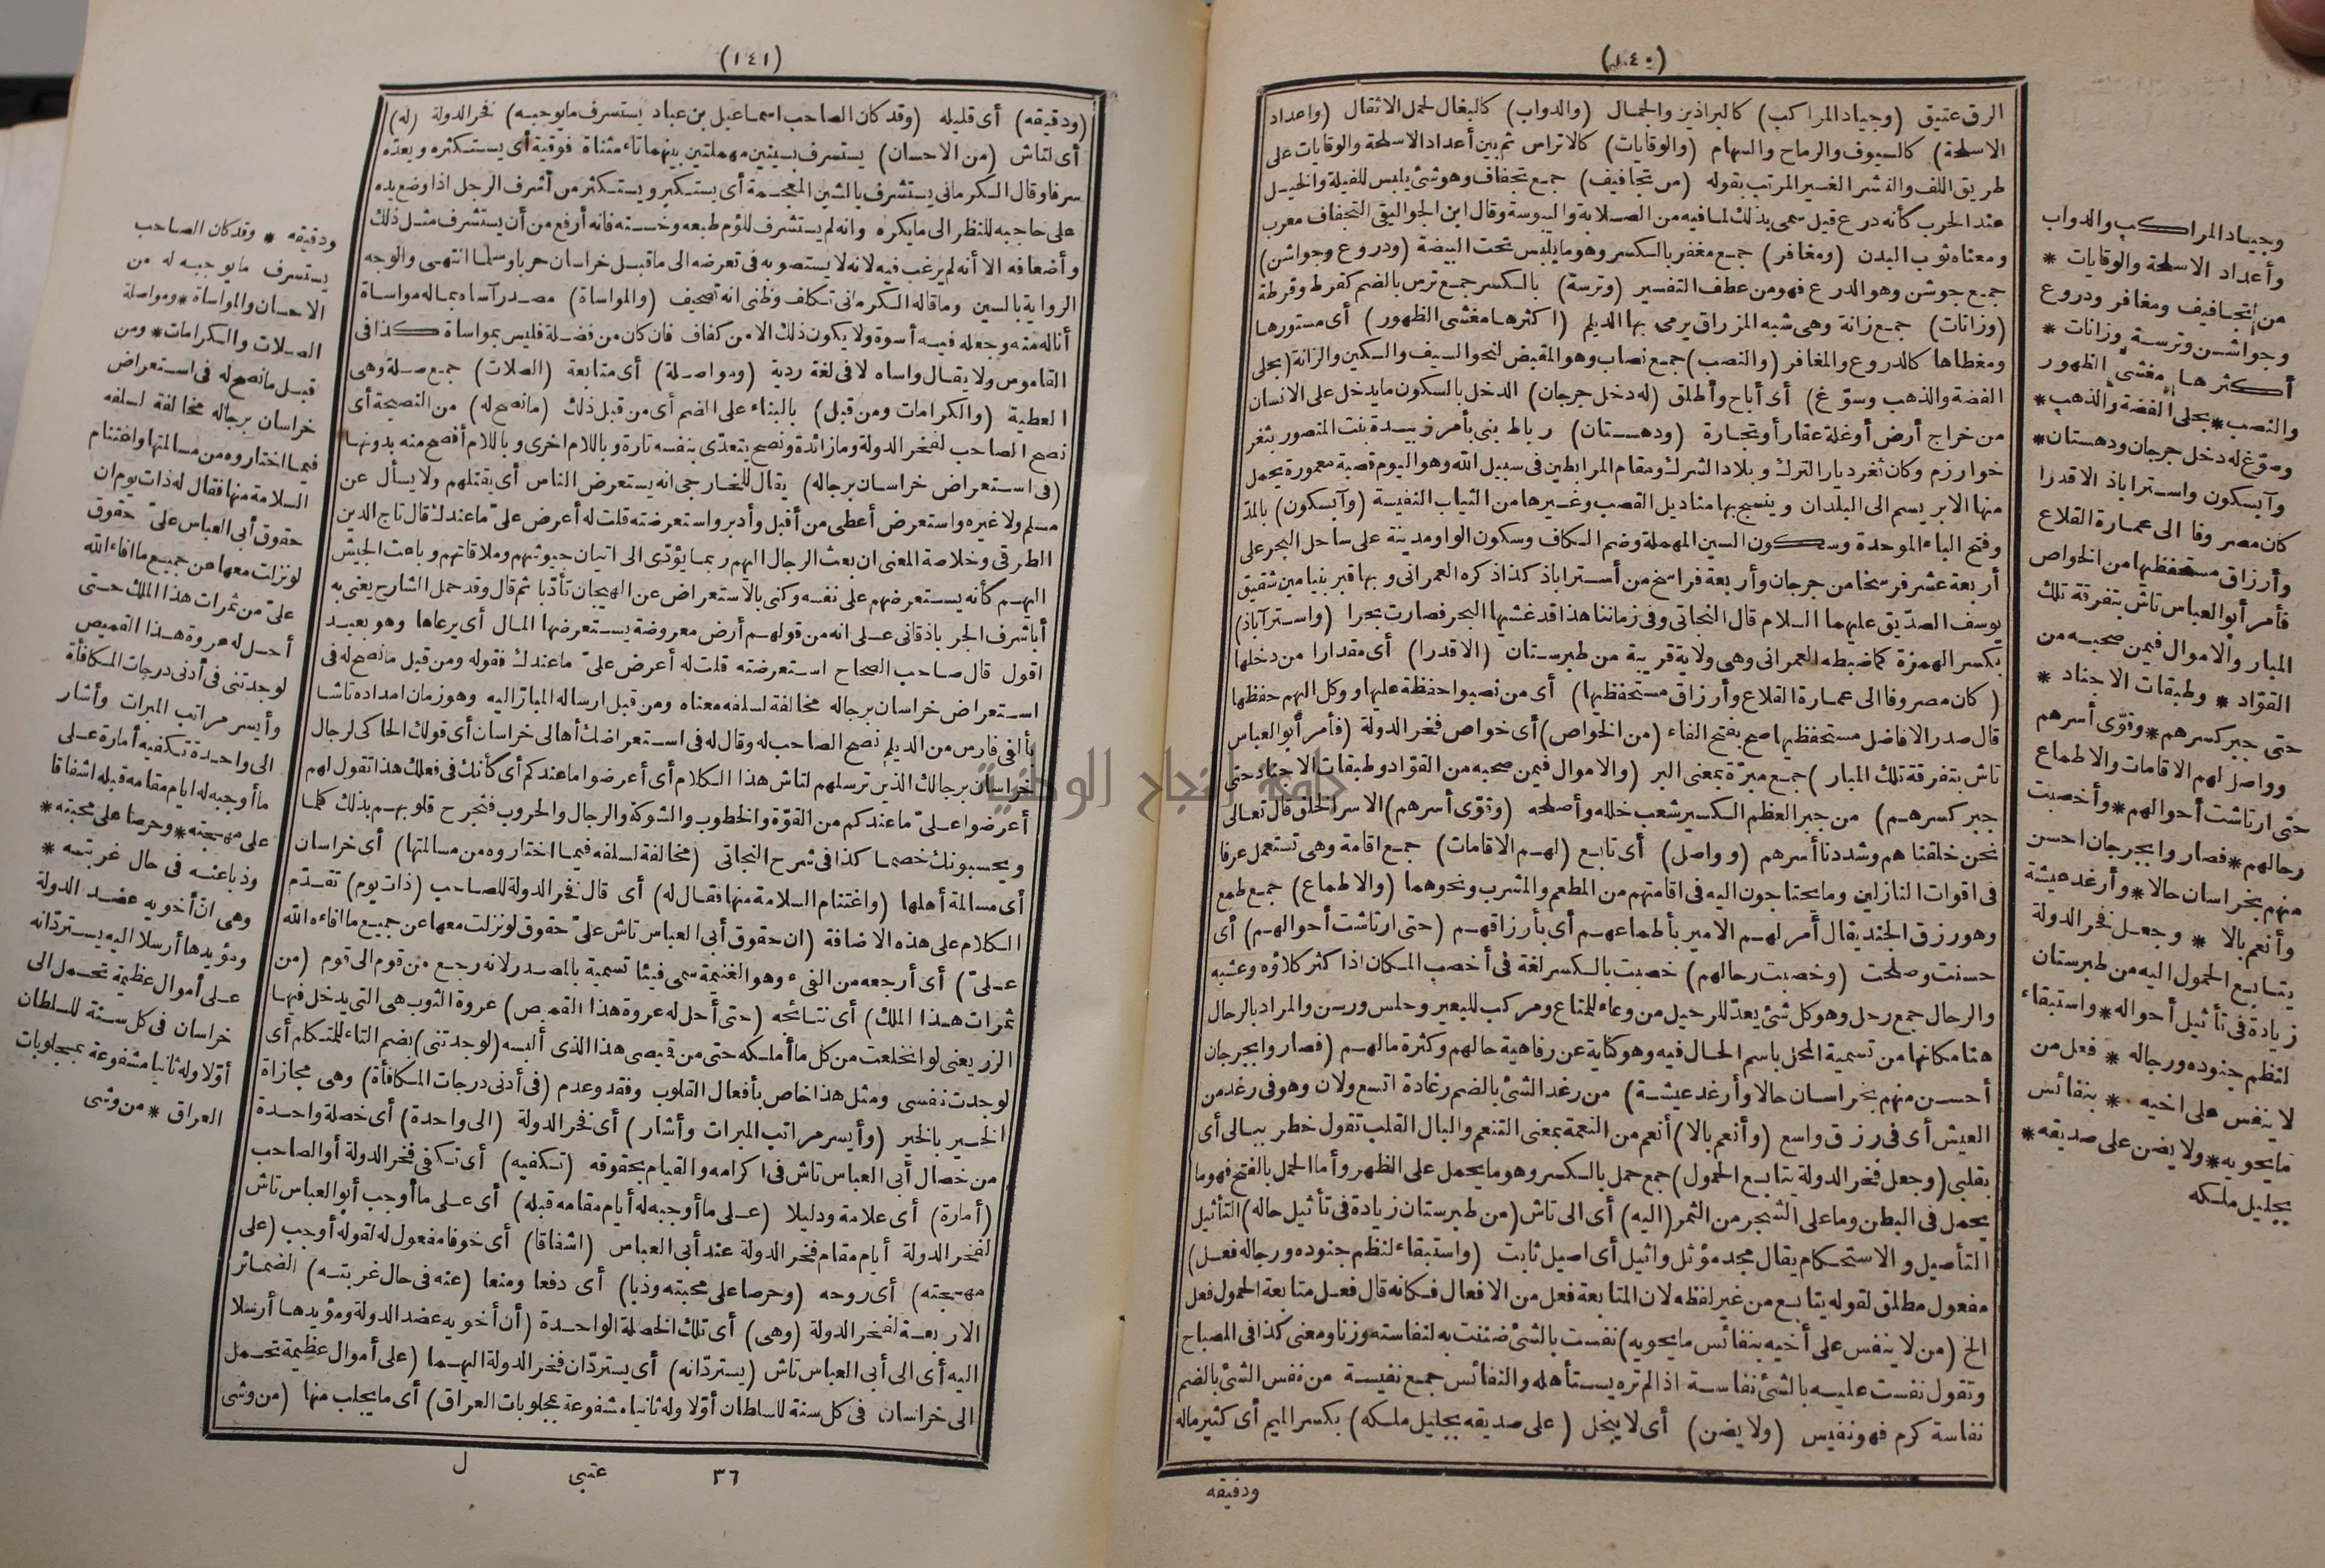 (١٤٠)
الرق عتيق (وجياد المراكب) كالبراذين والجمال (والدواب) كالبغال لحمل الاثقال (واعداد
الاسلحة) كالسيوف والرماح والسهام (والوقايات) كالاتراس ثم بين أعداد الاسلحة والوقايات على
طريق اللف والنشر الغير المرتب بقوله (من تجافيف) جمع تجفاف وهو شئ يلبس للفيلة والخيل
عند الحرب كأنه درع قيل سمى بذلك لمافيه من الصلابة واليبوسة وقال ابن الجواليقى التجفاف معرب
ومعناه ثوب البدن (ومغافر) جمع مغفر بالكسر وهو مايلبس تحت البيضة (ودروع وجواشن)
جميع جوشن وهو الدرع فهو من عطف التفسير (وترسة) بالكسر جمع ترس بالضم كقرط وقرطة
(وزانات) جمع زانة وهى شبه المزراق يرمى بها الديلم (اكثرها مغشى الظهور) أى مستورها
ومغطاها كالدروع والمغافر (والنصب) جمع نصاب وهو المقبض لنحو السيف والسكين والزانة (بحلى
الفضة والذهب وسوّغ) أى أباح وأطلق (له دخل جرجان) الدخل بالسكون مايدخل على الانسان
من خراج أرض أوغلة عقار أو تجارة (ودهستان) رباط بنى بأمر زبيدة بنت المنصور بثغر
خوارزم وكان ثغر ديار الترك وبلاد الشرك ومقام المرابطين فى سبيل الله وهو اليوم قصبة معمورة يحمل
منها الابريسم الى البلدان وينسج بها مناديل القصب وغيرها من الثياب النفيسة (وآبسكون) بالمدّ
وفتح الباء الموحدة وسكون السين المهملة وضم الكاف وسكون الواو مدينة على ساحل البحر على
أربعة عشر فرسخا من جرجان وأربعة فراسخ من أستراباذ كذا ذكره العمرانى وبها قبر بنيامين شقيق
يوسف الصدّيق عليهما السلام قال النجاتى وفى زماننا هذا قد غشيها البحر فصارت بحرا (واستراباذ)
بكسر الهمزة كماضبطه العمرانى وهى ولاية قريبة من طبرستان (الاقدرا) أى مقدارا من دخلها
(كان مصروفا الى عمارة القلاع وأرزاق مستحفظيها) أى من نصبوا حفظة عليها ووكل اليهم حفظها
قال صدر الافاضل مستحفظيها صح بفتح الفاء (من الخواص) أى خواص فخر الدولة (فأمر أبو العباس
تاش بتفرقة تلك المبار) جمع مبرّة بمعنى البر (والاموال فيمن صحبه من القوّاد وطبقات الاجناد حتى
جبر كسرهم) من جبر العظم الكسير شعب خلله وأصلحه (وقوّى أسرهم) الاسر الخلق قال تعالى
نحن خلقناهم وشددنا أسرهم (وواصل) أى تابع (لهم الاقامات) جمع اقامة وهى تستعمل عرفا
فى اقوات النازلين ومايحتاجون اليه فى اقامتهم من المطعم والمشرب ونحوهما (والاطماع) جمع طمع
وهو رزق الجند يقال أمر لهم الامير بأطماعهم أى بأرزاقهم (حتى ارتاشت أحوالهم) أى
حسنت وصلحت (وخصبت رحالهم) خصبت بالكسر لغة فى أخصب المكان اذا كثر كلاؤه وعشبه
والرحال جمع رحل وهو كل شئ يعدّ للرحيل من وعاء للمتاع ومركب للبعير وحلس ورسن والمراد بالرحال
هنا مكانها من تسمية المحل باسم الحال فيه وهو كناية عن رفاهية حالهم وكثرة مالهم (فصاروا بجرجان
أحسن منهم بخراسان حالا وأرغد عيشة) من رغد الشئ بالضم رغادة اتسع ولان وهو فى رغد من
العيش أى فى رزق واسع (وأنعم بالا) أنعم من النعمة بمعنى التنعم والبال القلب تقول خطر ببالى أى
بقلبى (وجعل فخر الدولة يتابع الحمول) جمع حمل بالكسر وهو مايحمل على الظهر وأما الحمل بالفتح فهو ما
يحمل فى البطن وما على الشجر من الثمر (اليه) أى الى تاش (من طبرستان زيادة فى تأثيل حاله) التأثيل
التأصيل والاستحكام يقال مجد مؤثل واثيل أى اصيل ثابت (واستبقاء لنظم جنوده ورجاله فعل)
مفعول مطلق لقوله يتابع من غير لفظه لان المتابعة فعل من الافعال فكانه قال فعل متابعة الحمول فعل
الخ (من لا ينفس على أخيه بنفائس مايحويه) نفست بالشئ ضننت به لنفاسته وزنا ومعنى كذا فى المصباح
وتقول نفست عليه بالشئ نفاسة اذا لم تره يستأهله والنفائس جمع نفيسة من نفس الشئ بالضم
نفاسة كرم فهو نفيس (ولا يضن) أى لا يبخل (على صديقه بجليل ملكه) بكسر الميم أى كثير ماله
ودقيقه
وجياد المراكب والدواب
وأعداد الاسلحة والوقايات *
من تجافيف ومغافر ودروع
وجواشن وترسة وزانات *
أكثرها مغشى الظهور
والنصب * بحلى الفضة والذهب *
وسوّغ له دخل جرجان ودهستان *
وآبسكون واستراباذ الاقدرا
كان مصروفا الى عمارة القلاع
وأرزاق مستحفظيها من الخواص
فأمر أبو العباس تاش بتفرقة تلك
المبار والاموال فيمن صحبه من
القوّاد * وطبقات الاجناد *
حتى جبر كسرهم * وقوّى أسرهم
وواصل لهم الاقامات والاطماع
حتى ارتاشت أحوالهم * وأخصبت
رحالهم * فصاروا بجرجان احسن
منهم بخراسان حالا * وأرغد عيشة
وأنعم بالا * وجعل فخر الدولة
يتابع الحمول اليه من طبرستان
زيادة فى تأثيل أحواله * واستبقاء
لنظم جنوده ورجاله * فعل من
لا ينفس على اخيه * بنفائس
مايحويه * ولا يضن على صديقه *
بجليل ملكه
(١٤١)
(ودقيقه) أى قليله (وقد كان الصاحب اسماعيل بن عباد يستسرف مايوجبه) فخر الدولة (له)
أى لتاش (من الاحسان) يستسرف بسينين مهملتين بينهما تاء مثناة فوقية أى يستكثره ويعدّه
سرفا وقال الكرمانى يستشرف بالشين المعجمة أى يستكبر ويستكثر من أشرف الرجل اذا وضع يده
على حاجبه للنظر الى مايكره وانه لم يستشرف للؤم طبعه وخسته فانه أرفع من أن يستشرف مثل ذلك
وأضعافه الا أنه لم يرغب فيه لانه لا يستصوبه فى تعرضه الى ماقبل خراسان حربا وسلما انتهى والوجه
الرواية بالسين وما قاله الكرمانى تكلف وظنى انه تصحيف (والمواساة) مصدر آساه بماله مواساة
أناله منه وجعله فيه أسوة ولا يكون ذلك الا من كفاف فان كان من فضلة فليس بمواساة كذا فى
القاموس ولا يقال واساه لا فى لغة ردية (ومواصلة) أى متابعة (الصلات) جمع صلة وهى
العطية (والكرامات ومن قبل) بالبناء على الضم أى من قبل ذلك (مانصح له) من النصيحة أى
نصح الصاحب لفخر الدولة وما زائدة ونصح يتعدّى بنفسه تارة وباللام اخرى وباللام أفصح منه بدونها
(فى استعراض خراسان برجاله) يقال للخارجى انه يستعرض الناس أى يقتلهم ولا يسأل عن
مسلم ولا غيره واستعرض أعطى من أقبل وأدبر واستعرضته قلت له أعرض علىّ ماعندك قال تاج الدين
الطرقى وخلاصة المعنى ان بعث الرجال اليهم ربما يؤدّى الى اتيان جيوشهم وملاقاتهم وباعث الجيش
اليهم كأنه يستعرضهم على نفسه وكنى بالاستعراض عن الهيجان تأدّبا ثم قال وقد حمل الشارح يعنى به
أبا شرف الجرباذقانى على انه من قولهم أرض معروضة يستعرضها المال أى يرعاها وهو بعيد
اقول قال صاحب الصحاح استعرضته قلت له أعرض علىّ ماعندك فقوله ومن قبل مانصح له فى
استعراض خراسان برجاله مخالفة لسلفه معناه ومن قبل ارساله المبارّ اليه وهو زمان امداده تاشا
بألفى فارس من الديلم نصح الصاحب له وقال له فى استعراضك أهالى خراسان أى قولك الحاكى لرجال
خراسان برجالك الذين ترسلهم لتاش هذا الكلام أى أعرضوا ماعندكم أى كأنك فى فعلك هذا تقول لهم
أعرضوا علىّ ماعندكم من القوّة والخطوب والشوكة والرجال والحروب فتجرح قلوبهم بذلك كلما
ويحسبونك خصما كذا فى شرح النجاتى (مخالفة لسلفه فيما اختاروه من مسالمتها) أى خراسان
أى مسالمة أهلها (واغتنام السلامة منها فقال له) أى قال فخر الدولة للصاحب (ذات يوم) تقدّم
الكلام على هذه الاضافة (ان حقوق أبى العباس تاش علىّ حقوق لو نزلت معها عن جميع ما افاءه الله
علىّ) أى أرجعه من الفىء وهو الغنيمة سمى فيئا تسمية بالمصدر لانه رجع من قوم الى قوم (من
ثمرات هذا الملك) أى نتائجه (حتى أحل له عروة هذا القميص) عروة الثوب هى التى يدخل فيها
الزر يعنى لو انخلعت من كل ما أملكه حتى من قميصى هذا الذى ألبسه (لوجدتنى) بضم التاء للمتكلم أى
لوجدت نفسى ومثل هذا خاص بأفعال القلوب وفقد وعدم (فى أدنى درجات المكافأة) وهى مجازاة
الخير بالخير (وأيسر مراتب المبرات وأشار) أى فخر الدولة (الى واحدة) أى خصلة واحدة
من خصال أبى العباس تاش فى اكرامه والقيام بحقوقه (تكفيه) أى تكفى فخر الدولة أو الصاحب
(أمارة) أى علامة ودليلا (على ما أوجبه له أيام مقامه قبله) أى على ما أوجب أبو العباس تاش
لفخر الدولة أيام مقام فخر الدولة عند أبى العباس (اشفاقا) أى خوفا مفعول له لقوله أوجب (على
مهجته) أى روحه (وحرصا على محبته وذبا) أى دفعا ومنعا (عنه فى حال غربته) الضمائر
الاربعة لفخر الدولة (وهى) أى تلك الخصلة الواحدة (أن أخويه عضد الدولة ومؤيدها أرسلا
اليه أى الى أبى العباس تاش (يستردّانه) أى يستردّان فخر الدولة اليهما (على أموال عظيمة تحمل
الى خراسان فى كل سنة للسلطان أوّلا وله ثانيا مشفوعة بمجلوبات العراق) أى مايجلب منها (من وشى
٣٦ عتبى ل
ودقيقه * وقد كان الصاحب
يستسرف مايوجبه له من
الاحسان والمواساة * ومواصلة
الصلات والكرامات * ومن
قبل مانصح له فى استعراض
خراسان برجاله مخالفة لسلفه
فيما اختاروه من مسالمتها واغتنام
السلامة منها فقال له ذات يوم ان
حقوق أبى العباس علىّ حقوق
لو نزلت معها عن جميع ما افاء الله
علىّ من ثمرات هذا الملك حتى
أحل له عروة هذا القميص
لوجدتنى فى أدنى درجات المكافأة
وأيسر مراتب المبرات وأشار
الى واحدة تكفيه أمارة على
ما أوجبه له ايام مقامه قبله اشفاقا
على مهجته * وحرصا على محبته *
وذبا عنه فى حال غربته *
وهى انّ أخويه عضد الدولة
ومؤيدها أرسلا اليه يستردّانه
على أموال عظيمة تحمل الى
خراسان فى كل سنة للسلطان
أوّلا وله ثانيا مشفوعة بمجلوبات
العراق * من وشى
جامعة النجاح الوطنية